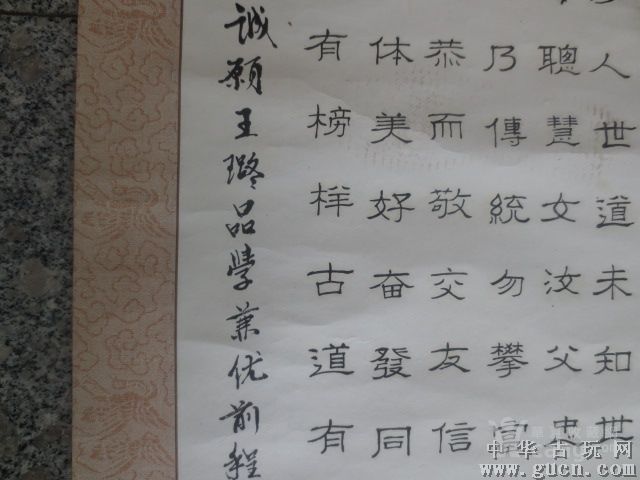 人世道未知世
聰慧女汝父忠
乃傳統勿攀富
恭而敬交友信
体美好奋發同
有榜样古道有
誠願王璐品學兼优前程
中华古玩网
www.gucn.com